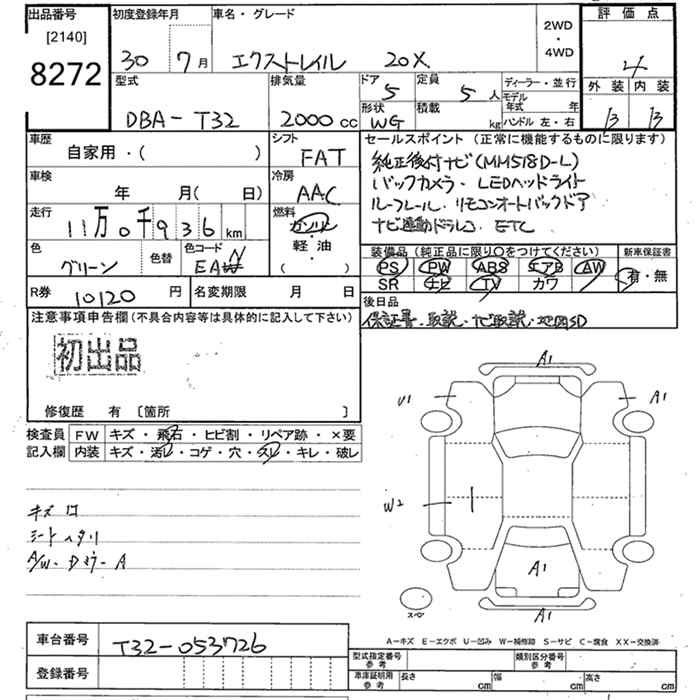 出品番号
[2140]
8272
初度登録年月
30 7月
車名・グレード
エクストレイル 20X
2WD
・
4WD
評価点
4
外装 内装
B B
型式
DBA-T32
排気量
2000cc
ドア 5
定員 5人
形状 WG
積載 kg
ディーラー・並行
モデル年式 年
ハンドル 左・右
車歴
自家用・( )
シフト
FAT
車検
年 月( 日)
冷房
AAC
走行
11万0千936km
燃料
ガソリン
軽・油
( )
色
グリーン
色替
色コード
EAN
R券 10120円
名変期限 月 日
セールスポイント(正常に機能するものに限ります)
純正後付ナビ(MM518D-L)
バックカメラ・LEDヘッドライト
ルーフレール・リモコンオートバックドア
ナビ連動ドラレコ・ETC
装備品(純正品に限り○をつけてください)
新車保証書
PS PW ABS エアB AW
SR ナビ TV カワ
有・無
後日品
保証書・取説・ナビ取説・地図SD
注意事項申告欄(不具合内容等は具体的に記入して下さい)
初出品
修復歴 有 [箇所 ]
検査員
記入欄
FW キズ・飛石・ヒビ割・リペア跡・×要
内装 キズ・汚レ・コゲ・穴・スレ・キレ・破レ
キズ
シートヘタリ
A/W・Dミラー A
A1
U1
A1
W2
A1
A1
スペア
A-キズ E-エクボ U-凹み W-補修跡 S-サビ C-腐食 XX-交換済
車台番号 T32-053726
登録番号
型式指定番号
参考
類別区分番号
参考
車庫証明用
参考
長さ cm
幅 cm
高さ cm